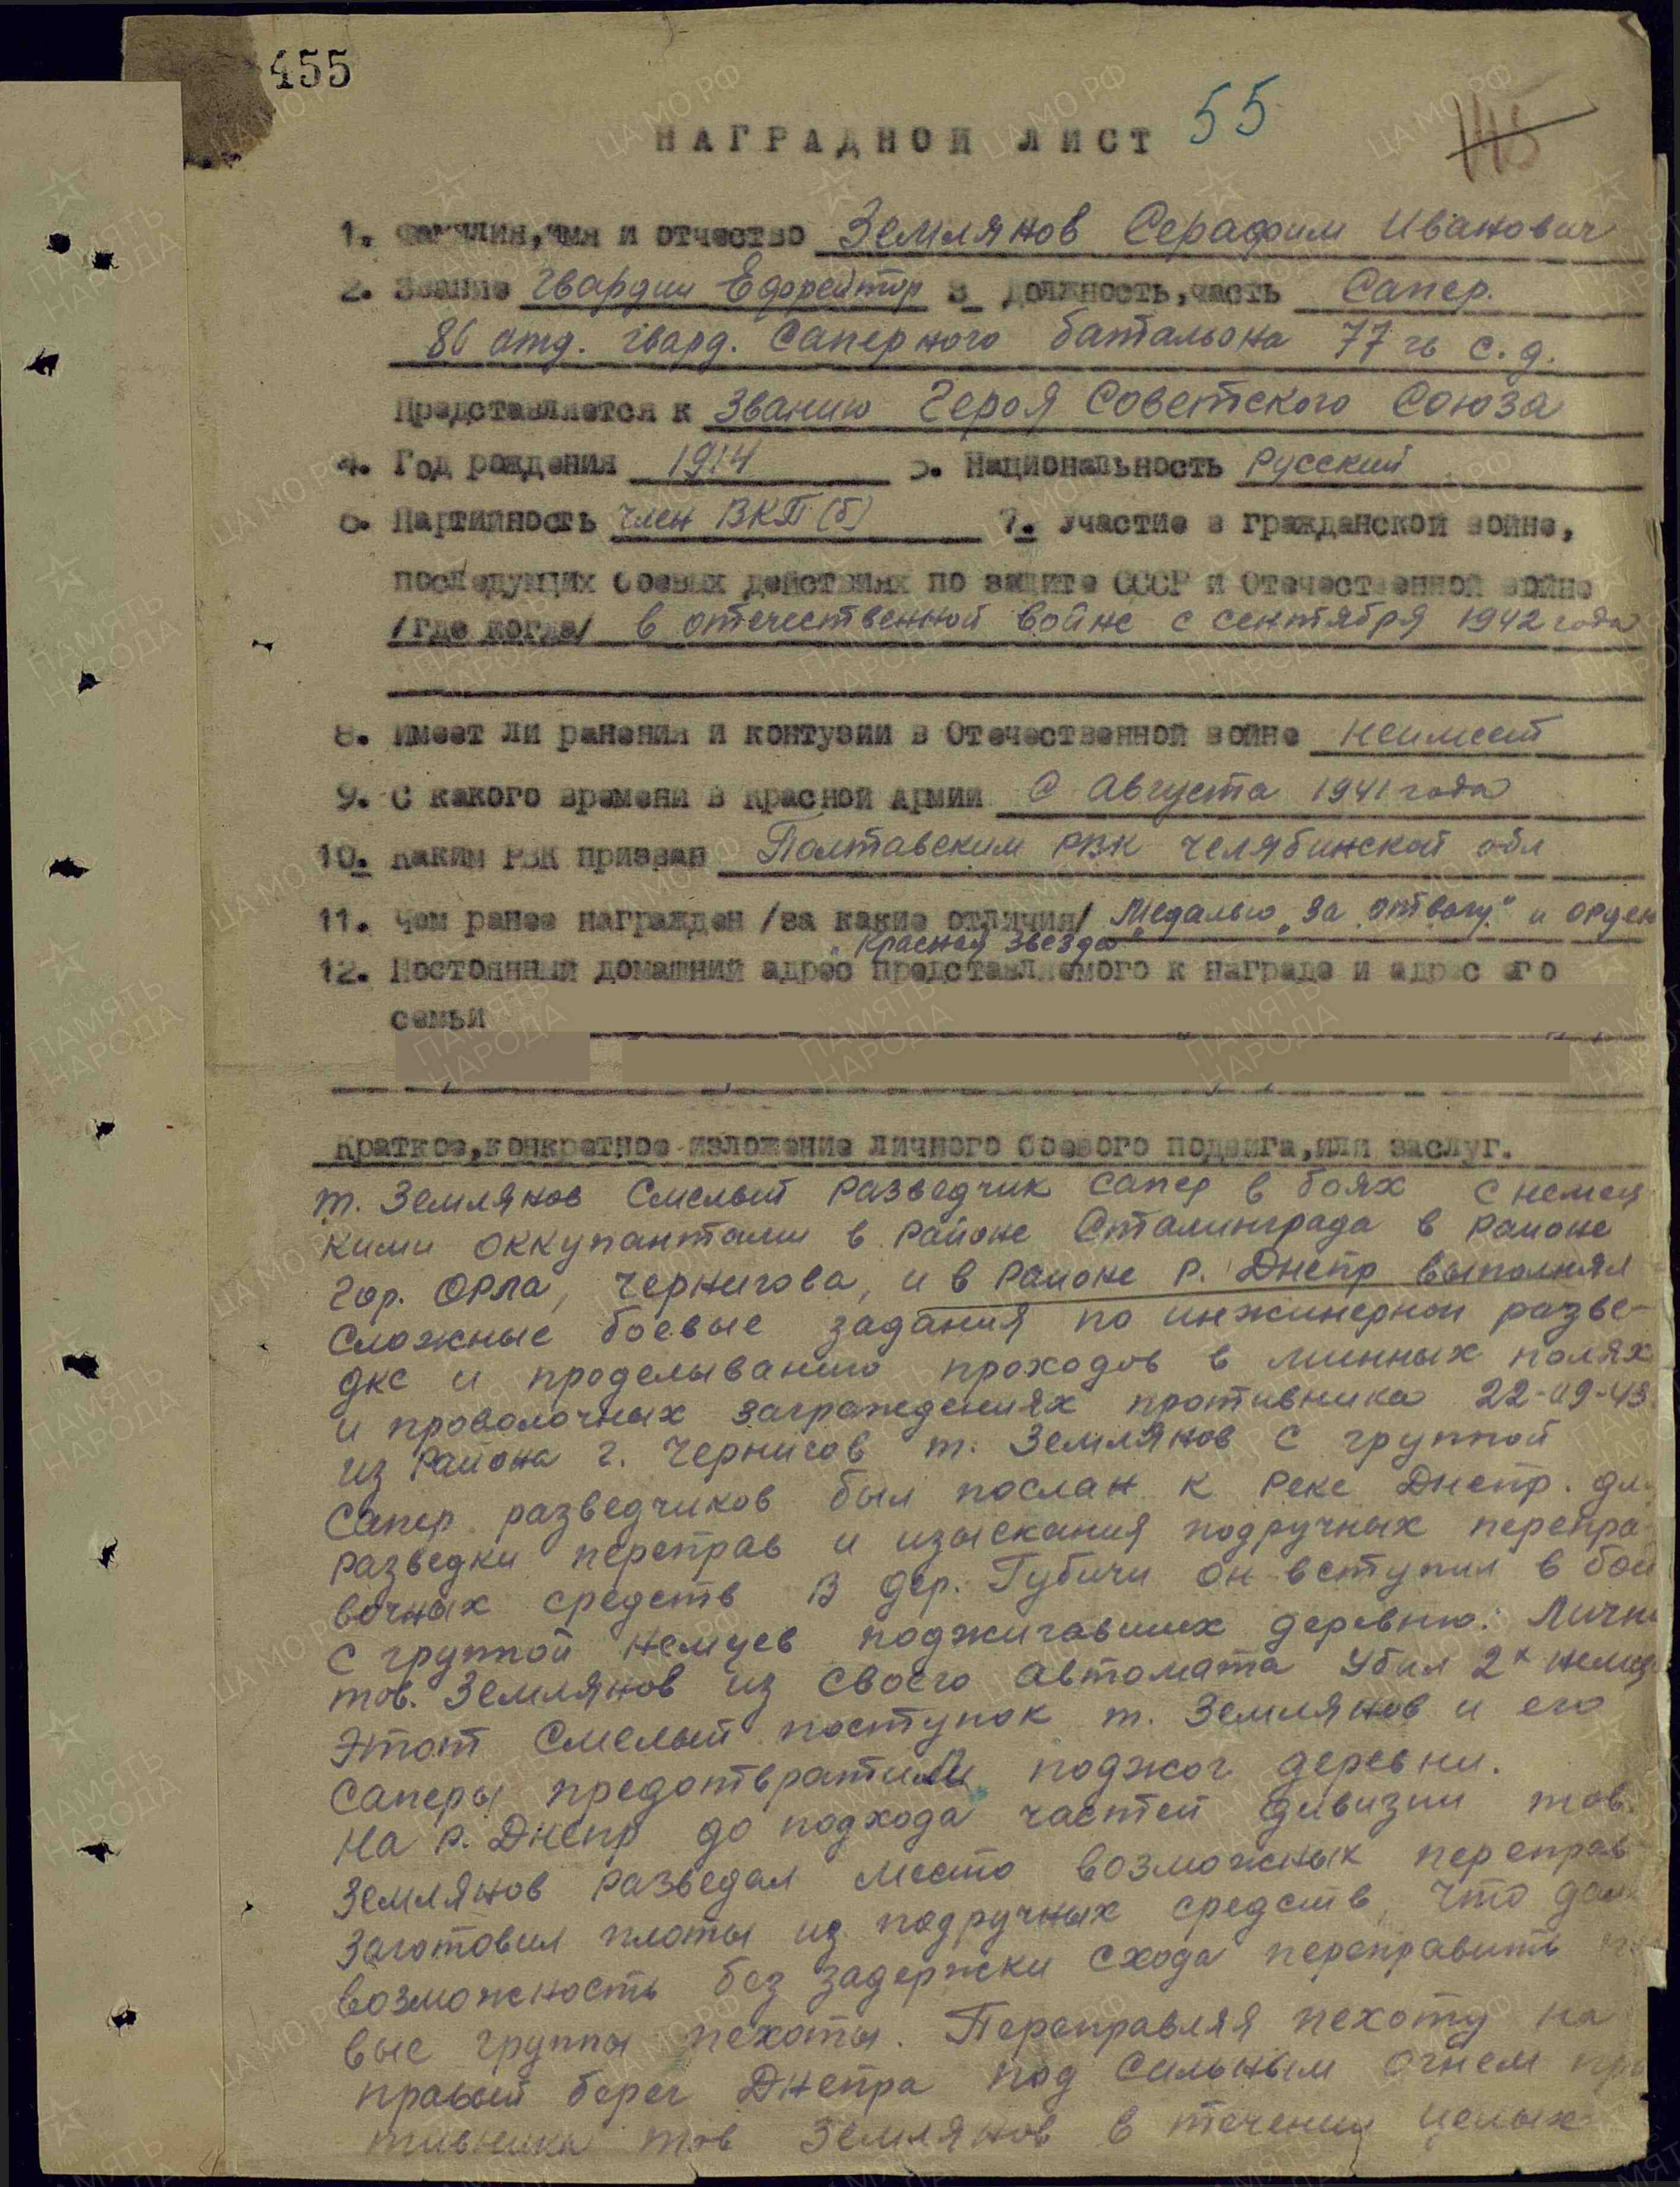 455
НАГРАДНОЙ ЛИСТ 55
145
1. Фамилия, имя и отчество Землянов Серафим Иванович
2. Звание Гвардии Ефрейтор 3 Должность, часть Сапер.
86 отд. гвард. Саперного батальона 77 гв с. д.
Представляется к Званию Героя Советского Союза
4. Год рождения 1914 5. Национальность Русский
6. Партийность член ВКП(б) 7. Участие в гражданской войне,
последующих боевых действиях по защите СССР и Отечественной войне
/где когда/ в отечественной войне с сентября 1942 года
8. Имеет ли ранения и контузии в Отечественной войне неимеет
9. С какого времени в Красной Армии С Августа 1941 года
10. Каким РВК призван Полтавским РВК Челябинской обл
11. Чем ранее награжден /за какие отличия/ Медалью „За отвагу" и орден
„Красная звезда"
12. Постоянный домашний адрес представляемого к награде и адрес его
семьи
Краткое, конкретное изложение личного боевого подвига, или заслуг.
т. Землянов Смелый Разведчик Сапер в боях с немец
кими оккупантами в Районе Сталинграда в Районе
Гор. Орла, Чернигова, и в Районе Р. Днепр выполнял
Сложные боевые задания по инжинерной разве-
дке и проделыванию проходов в минных полях
и проволочных заграждениях противника 22-09-43
из Района г. Чернигов т. Землянов с группой
Сапер разведчиков был послан к Реке Днепр. для
Разведки переправ и изыскания подручных перепра
вочных средств В дер. Губичи он вступил в бой
с группой немцев поджигавших деревню. Лично
тов. Землянов из своего Автомата Убил 2х немцев
Этот Смелый поступок т. Землянов и его
Саперы предотвратили поджог деревни.
На р. Днепр до подхода частей дивизии тов.
Землянов Разведал место возможных переправ
Заготовил плоты из подручных средств, что дало
возможность без задержки схода переправить
вые группы пехоты. Переправляя пехоту на
правый берег Днепра под Сильным огнем про
тивника тов Землянов в течении целых